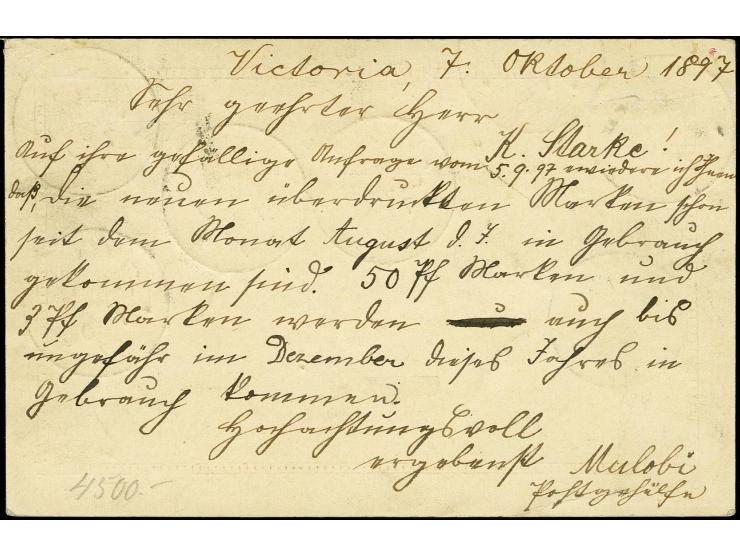 Victoria, 7. Oktober 1897
Sehr geehrter Herr
K. Starke!
Auf ihre gefällige Anfrage vom 5.9.97 erwiedere ich Ihnen
daß, die neuen überdruckten Marken schon
seit dem Monat August d. J. in Gebrauch
gekommen sind. 50 Pf Marken und
3 Pf Marken werden auch bis
ungefähr im Dezember dieses Jahres in
Gebrauch kommen.
Hochachtungsvoll
ergebenst Mulobi
Postgehülfe
4500.-